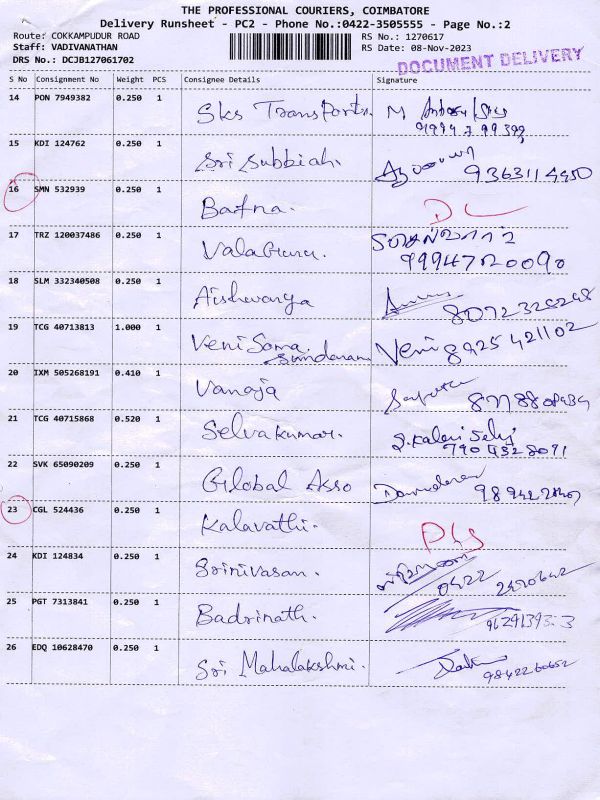 THE PROFESSIONAL COURIERS, COIMBATORE
Delivery Runsheet - PC2 - Phone No.:0422-3505555 - Page No.:2
Route: COKKAMPUDUR ROAD RS No.: 1270617
Staff: VADIVANATHAN RS Date: 08-Nov-2023
DRS No.: DCJB127061702 DOCUMENT DELIVERY
S No Consignment No Weight PCS Consignee Details Signature
14 PON 7949382 0.250 1 Sks Transports. M
15 KDI 124762 0.250 1 Sri Subbiah. 9363114450
16 SMN 532939 0.250 1 Bafna. DL
17 TRZ 120037486 0.250 1 Valaguru.
9994720090
18 SLM 332340508 0.250 1 Aishwarya
19 TCG 40713813 1.000 1 Veni Soma Sundaram Veni 8925421102
20 IXM 505268191 0.410 1 Vanaja
21 TCG 40715868 0.520 1 Selvakumar. S. Kalai Selvi
7904328091
22 SVK 65090209 0.250 1 Global Asso
23 CGL 524436 0.250 1 Kalavathi.
24 KDI 124834 0.250 1 Srinivasan. 0422
25 PGT 7313841 0.250 1 Badrinath.
26 EDQ 10628470 0.250 1 Sri Mahalakshmi.
9842260652